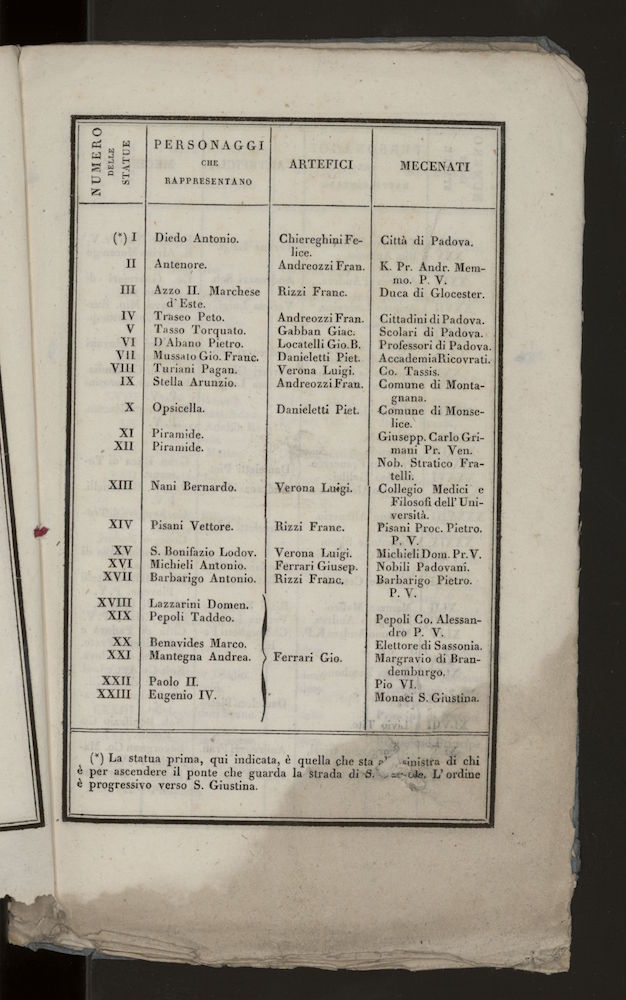 NUMERO DELLE STATUE
PERSONAGGI CHE RAPPRESENTANO
ARTEFICI
MECENATI
(*) I Diedo Antonio. Chiereghini Fe- Città di Padova.
lice.
II Antenore. Andreozzi Fran. K. Pr. Andr. Mem-
mo. P. V.
III Azzo II. Marchese Rizzi Franc. Duca di Glocester.
d'Este.
IV Traseo Peto. Andreozzi Fran. Cittadini di Padova.
V Tasso Torquato. Gabban Giac. Scolari di Padova.
VI D'Abano Pietro. Locatelli Gio.B. Professori di Padova.
VII Mussato Gio. Franc. Danieletti Piet. Accademia Ricovrati.
VIII Turiani Pagan. Verona Luigi. Co. Tassis.
IX Stella Arunzio. Andreozzi Fran. Comune di Monta-
gnana.
X Opsicella. Danieletti Piet. Comune di Monse-
lice.
XI Piramide. Giusepp. Carlo Gri-
XII Piramide. mani Pr. Ven.
Nob. Stratico Fra-
telli.
XIII Nani Bernardo. Verona Luigi. Collegio Medici e
Filosofi dell'Uni-
versità.
XIV Pisani Vettore. Rizzi Franc. Pisani Proc. Pietro.
P. V.
XV S. Bonifazio Lodov. Verona Luigi. Michieli Dom. Pr. V.
XVI Michieli Antonio. Ferrari Giusep. Nobili Padovani.
XVII Barbarigo Antonio. Rizzi Franc. Barbarigo Pietro.
P. V.
XVIII Lazzarini Domen.
XIX Pepoli Taddeo. Pepoli Co. Alessan-
dro P. V.
XX Benavides Marco. Elettore di Sassonia.
XXI Mantegna Andrea. Ferrari Gio. Margravio di Bran-
demburgo.
XXII Paolo II. Pio VI.
XXIII Eugenio IV. Monaci S. Giustina.
(*) La statua prima, qui indicata, è quella che sta sinistra di chi
è per ascendere il ponte che guarda la strada di S. L'ordine
è progressivo verso S. Giustina.